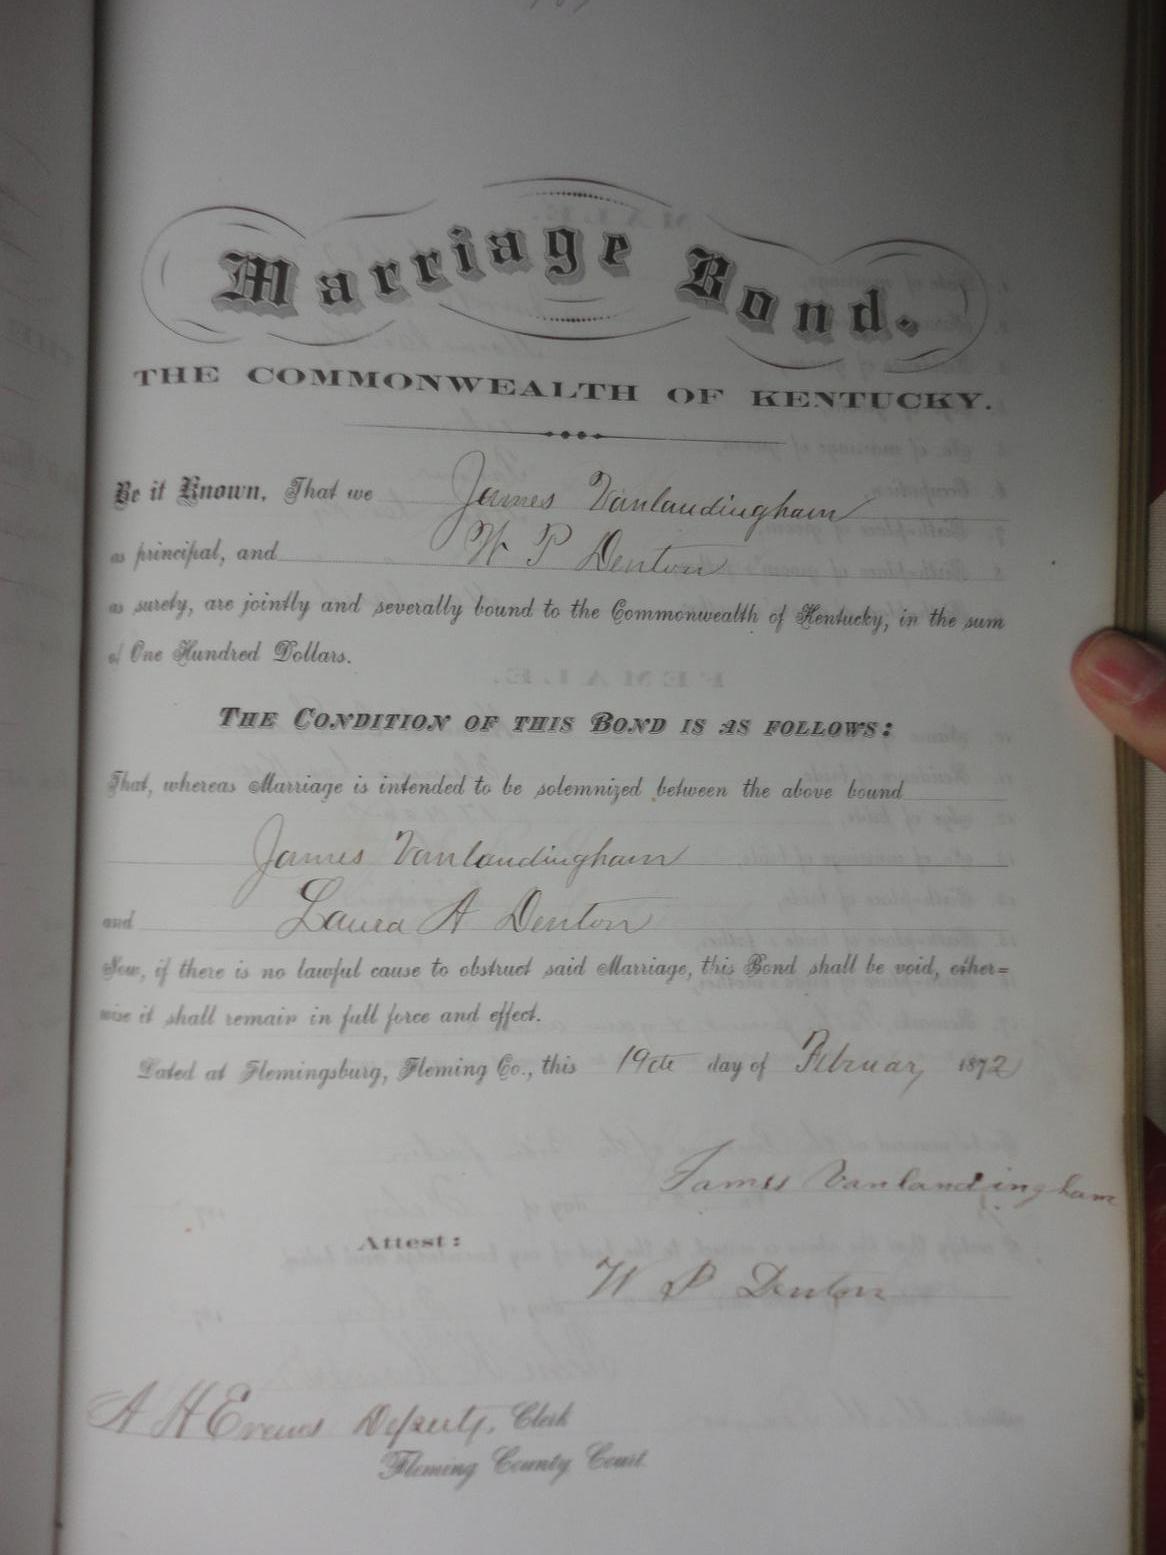 Marriage Bond.
THE COMMONWEALTH OF KENTUCKY.
Be it Known, That we James Vanlandingham
as principal, and W P Denton
as surety, are jointly and severally bound to the Commonwealth of Kentucky, in the sum
of One Hundred Dollars.
THE CONDITION OF THIS BOND IS AS FOLLOWS:
That, whereas Marriage is intended to be solemnized between the above bound
James Vanlandingham
and Laura A Denton
Now, if there is no lawful cause to obstruct said Marriage, this Bond shall be void, other=
wise it shall remain in full force and effect.
Dated at Flemingsburg, Fleming Co., this 19th day of Februar 1872
James Vanlandingham
Attest:
W P Denton
A H Evans Deputy, Clerk
Fleming County Court.